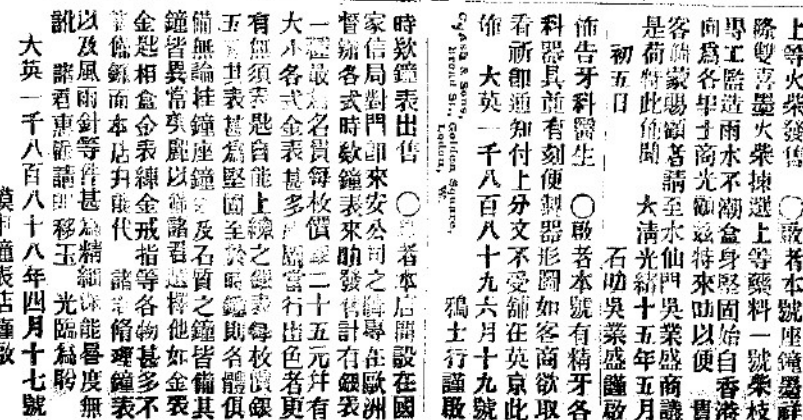 上等火柴發售　〇啟者本號座鐘
際雙喜墨火柴揀選上等藥料一號柴枝
專工監造雨水不潮盒身堅固始自香港
向爲各早士商光顧茲特來叻以便　售
客倘蒙賜顧者請至水仙門吳業盛商議
是荷特此佈聞　大清光緒十五年五月
初五日　石叻吳業盛謹啟
佈告牙科醫生　〇啟者本號有精牙各
科器具前有刻便製器形圖如客商欲取
看祈卽通知付上分文不受舖在英京此
佈　大英一千八百八十九六月十九號
鴉士行謹啟
C. Ash & Sons,
Broad Str, Golden Square,
London, W.
時欵鐘表出售　〇者本店開設在國
家信局對門卽來安公司之專在歐洲
督辦各式時欵鐘表來叻發售計有銀表
一種最爲名貴每枚價二十五元幷有
大小各式金表甚多當行出色者更
有無須表匙自能上練之銀表每枚價銀
五其表甚爲堅固至於時鐘則名體俱
備無論挂鐘座鐘及石質之鐘皆備其
鐘皆異常美麗以備諸君選擇他如金表
金匙相盒金表練金戒指等各物甚多不
備錄而本店幷能代　諸君脩理鐘表
以及風雨針等件甚爲精細能暑度無
訛　諸君惠顧請卽移玉　光臨爲盼
大英一千八百八十八年四月十七號
鐘表店謹啟